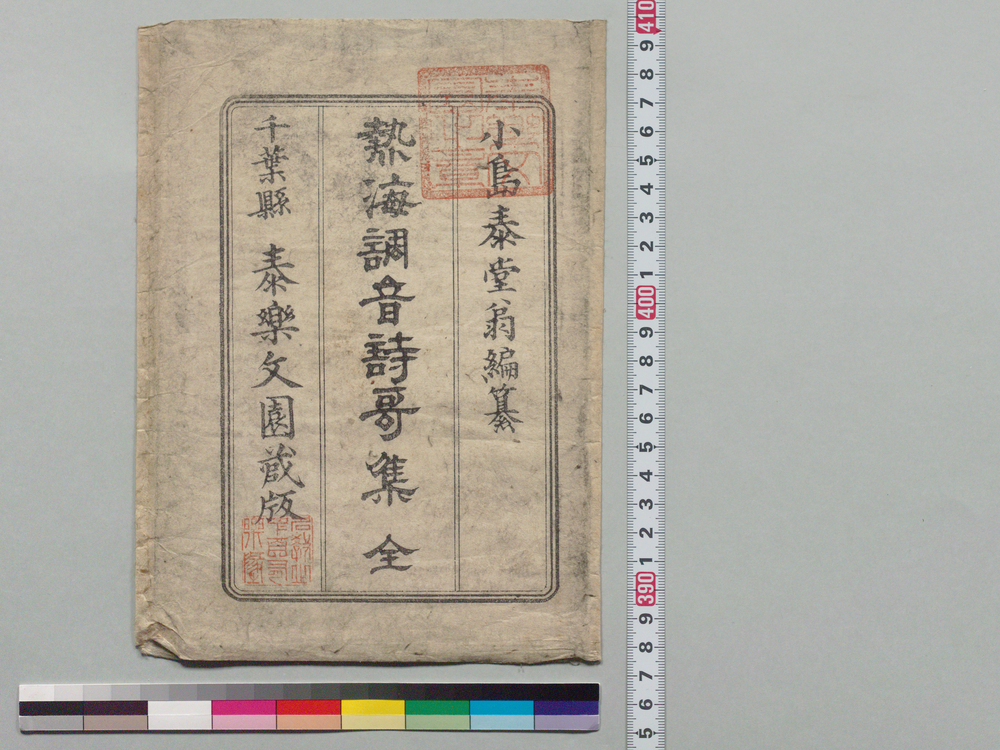 小島泰堂翁編纂
熱海調音詩哥集 全
千葉縣 泰樂文園蔵版
410
9
8
7
6
5
4
3
2
1
400
9
8
7
6
5
4
3
2
1
390
9
8
7
6
5